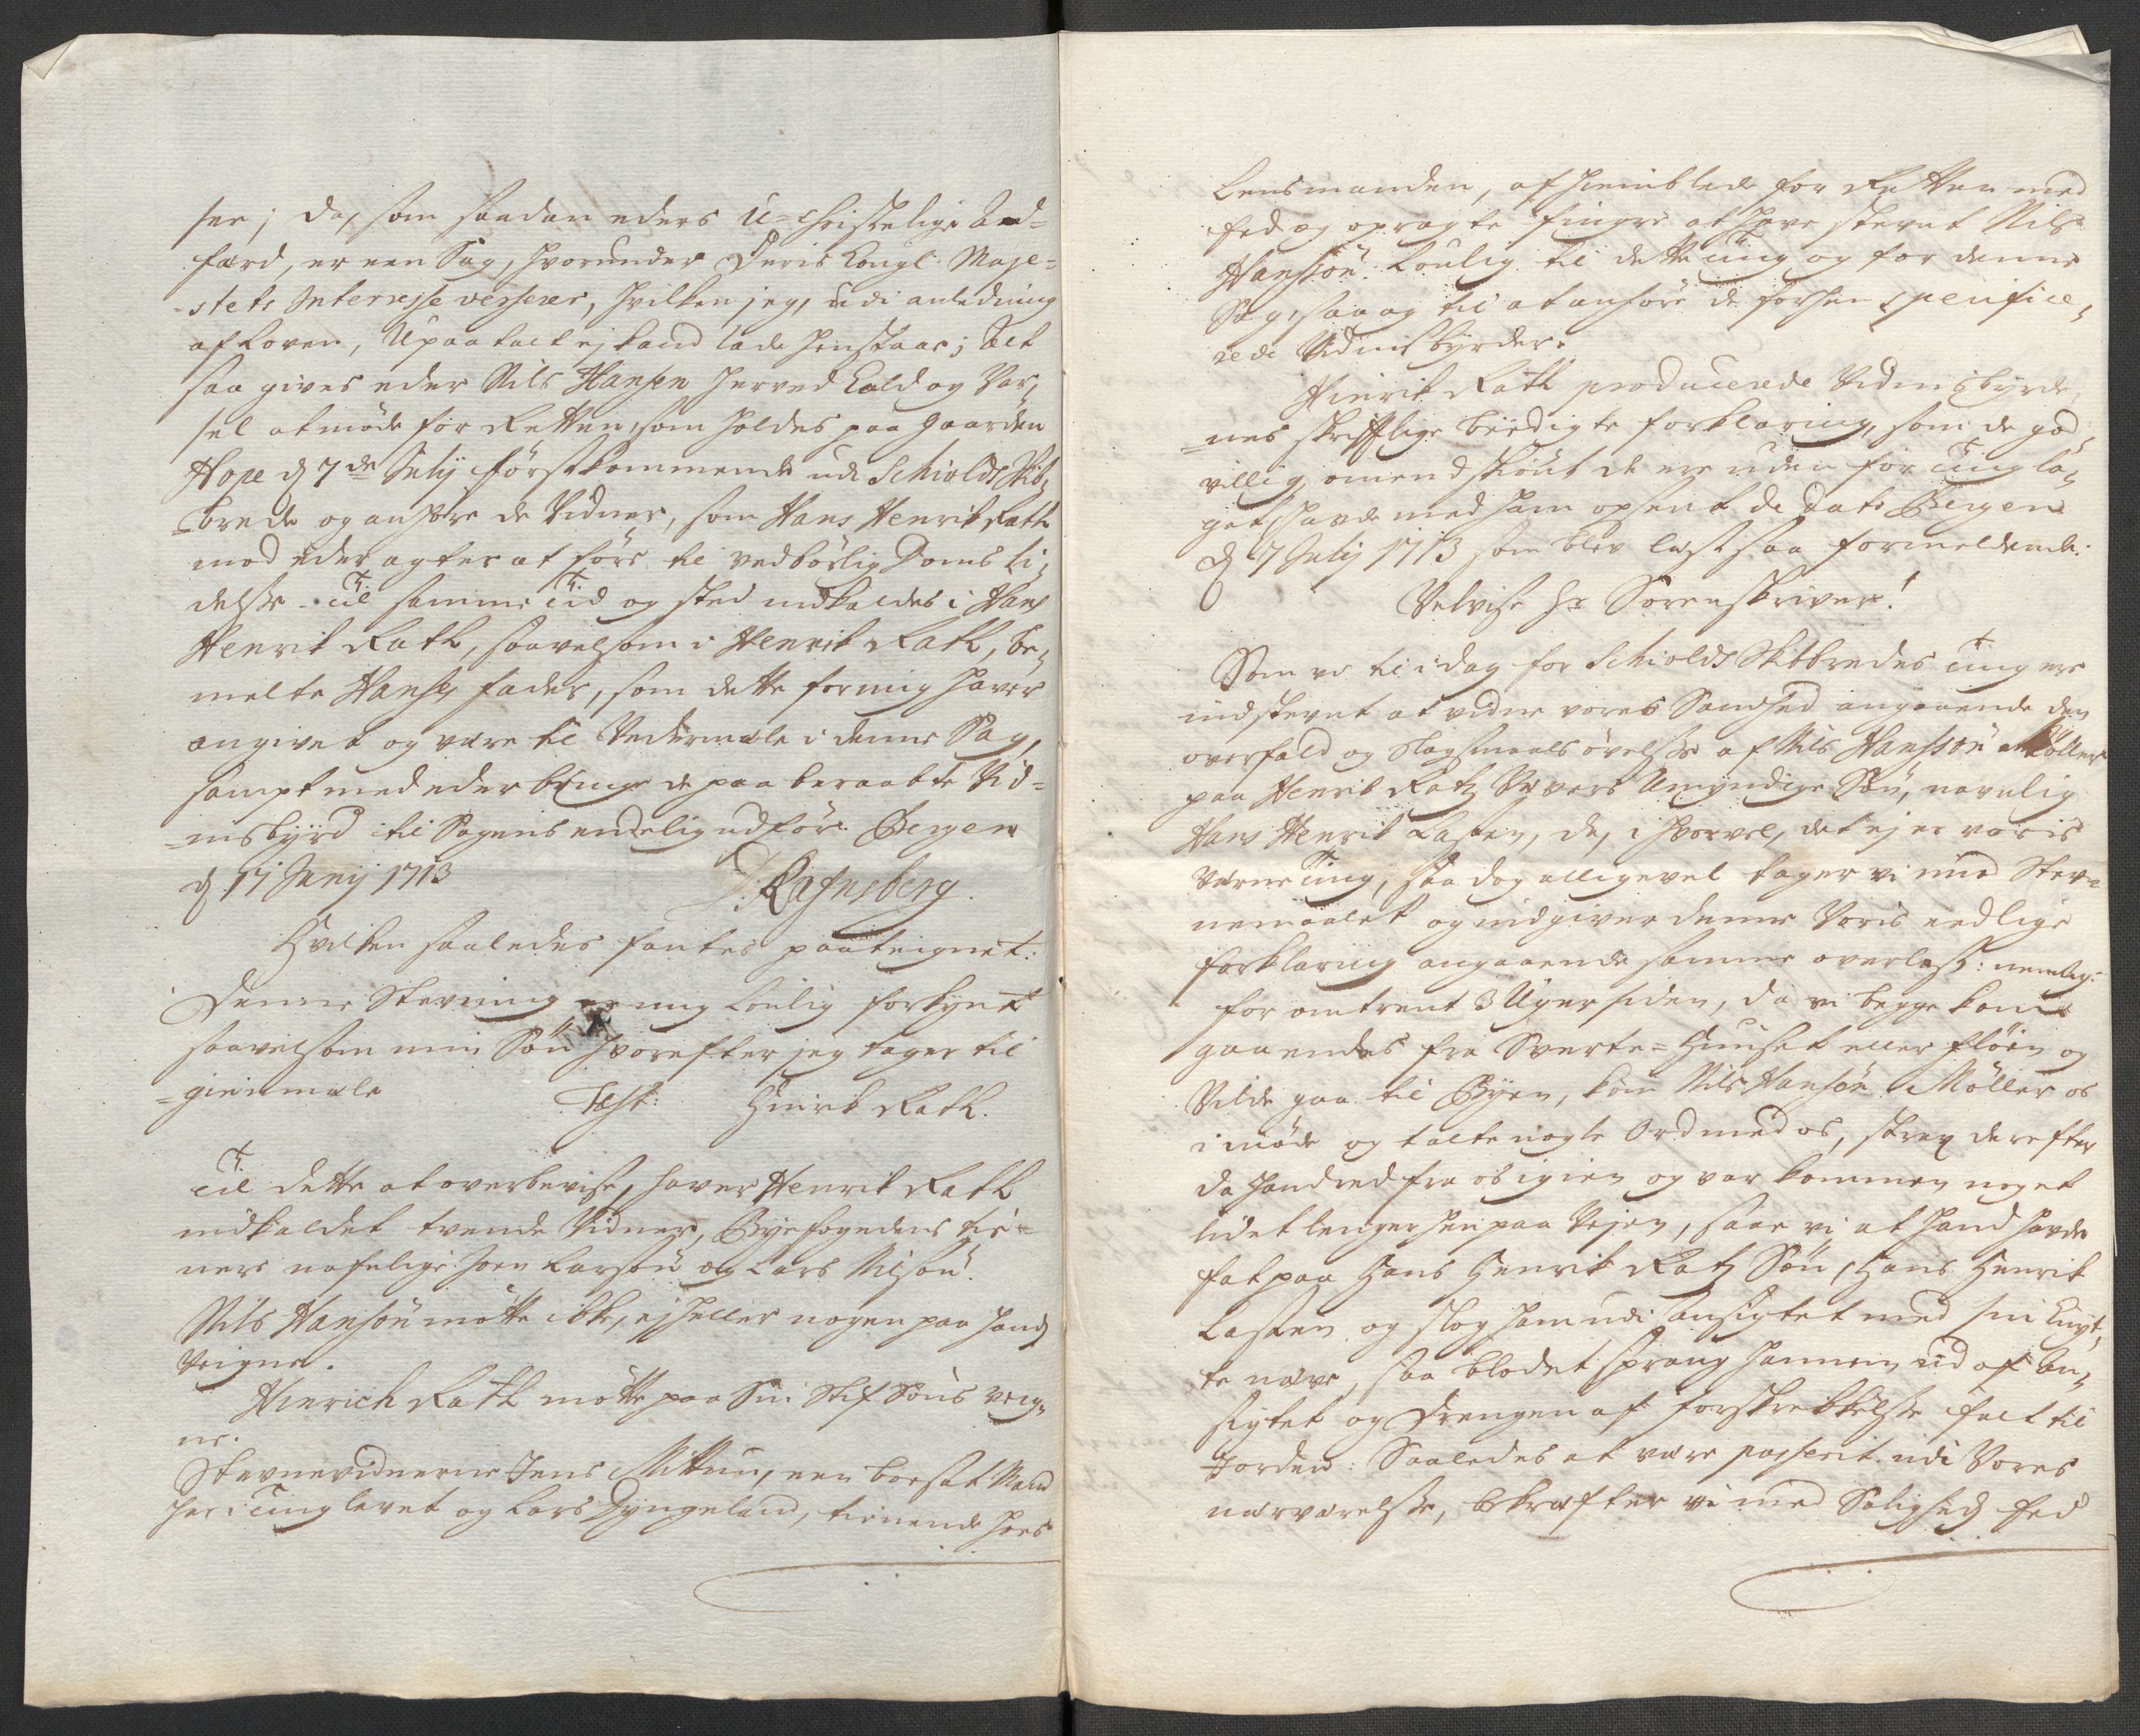 see; da, som saadan eders U-Christelige Ad-
færd, er een Sag, hvorunder Deris Kongl: Maje-
stets Interesse verserer, hvilken jeg, udi anledning
af Loven, Upaatalt ej kand lade henstaae; Alt
saa gives eder Nils Hansen herved Kald og Var-
sel at møde for Retten, som holdes paa gaarden
Hope d 7de Julij førstkommende udi Schiolds Skib-
brede og anhøre de Vidner, som Hans Henrik Rath
mod eder agter at føre til vedbørlig Doms li-
delse. Til samme Tid og sted indkaldes i Hans
Henrik Rath, saavelsom i Henrik Rath, be-
melte Hanses fader, som dette for mig haver
angivet og være til Vedermæle i denne Sag,
sampt med eder bringe de paa beraabte Vid-
nisbyrd til Sagens endelig udføre. Bergen
d 17 Junij 1713
D: Rafnsberg.
Hvilken saaledes fantes paateignet:
Denne Stevning er mig Loulig forkyndt
saavelsom min Søn hvorefter jeg tager til
gienmæle
Test: Hinrik Rath.
Til dette at overbevise, haver Henrik Rath
indkaldet tvende Vidner, Byefogedens tie-
nere nafnlige Joen Larsøn og Lars Nilsøn.
Nils Hansøn møtte ikke, ej heller nogen paa hans
Veigne.
Hinrich Rath møtte paa Sin Stif Søns veig-
ne.
Stevnevidnerne Jens Mittun, een boesat Mand
her i Tinglavet og Lars Dyngeland, tienende hos
Lensmanden, afhiemblede for Retten med
Eed og opragte fingre at have stevnt Nils
Hanssøn Loulig til dette Ting og for denne
Sag, saa og til at anhøre de forhen specifice-
rede Vidnisbyrder.
Hinrik Rath producerede Vidnisbyrde-
nes skrifftlige beedigte forklaring, som de god-
villig, omendskiønt de ere uden for Tingla-
get, havde med ham opsent de dato Bergen
d 7 Julij 1713 som blev læst saa formeldende:
Velvise Hr Sorenskriver!
Som vi til i dag for Schiolds Skibbredes Ting ere
indstevnt at vidne vores Sandhed angaaende den
overfald og slagsmaals øvelse af Nils Hanssøn Møller
paa Henrik Ratz Vævers Umyndige Søn, navnlig
Hans Henrik Lassen, da, i hvorvel, det ej er voris
Værneting, saa dog alligevel tager vi imod Stev-
nemaalet og indgiver denne Voris eedlige
forklaring angaaende samme overlast: nemlig:
for omtrent 3 Uger siden, da vi begge kom
gaaendes fra Sverte-Huuset eller Fløen og
Vilde gaa til Byen, kom Nils Hansøn Møller os
i møde og talte nogle Ord med os, strax derefter
da hand red fra os igien og var kommen noget
lidet lenger hen paa Vejen, saae vi at hand havde
fat paa Hans Henrik Ratz Søn, Hans Henrik
Lassen og slog ham udi Ansigtet med sin Knyt-
te næve, saa blodet sprang hannem ud af An-
sigtet og Drengen af forskrekkelse falt til
Jorden: Saaledes at være passerit udi Vores
nærværelse, bekræfter vi med Saligheds Eed